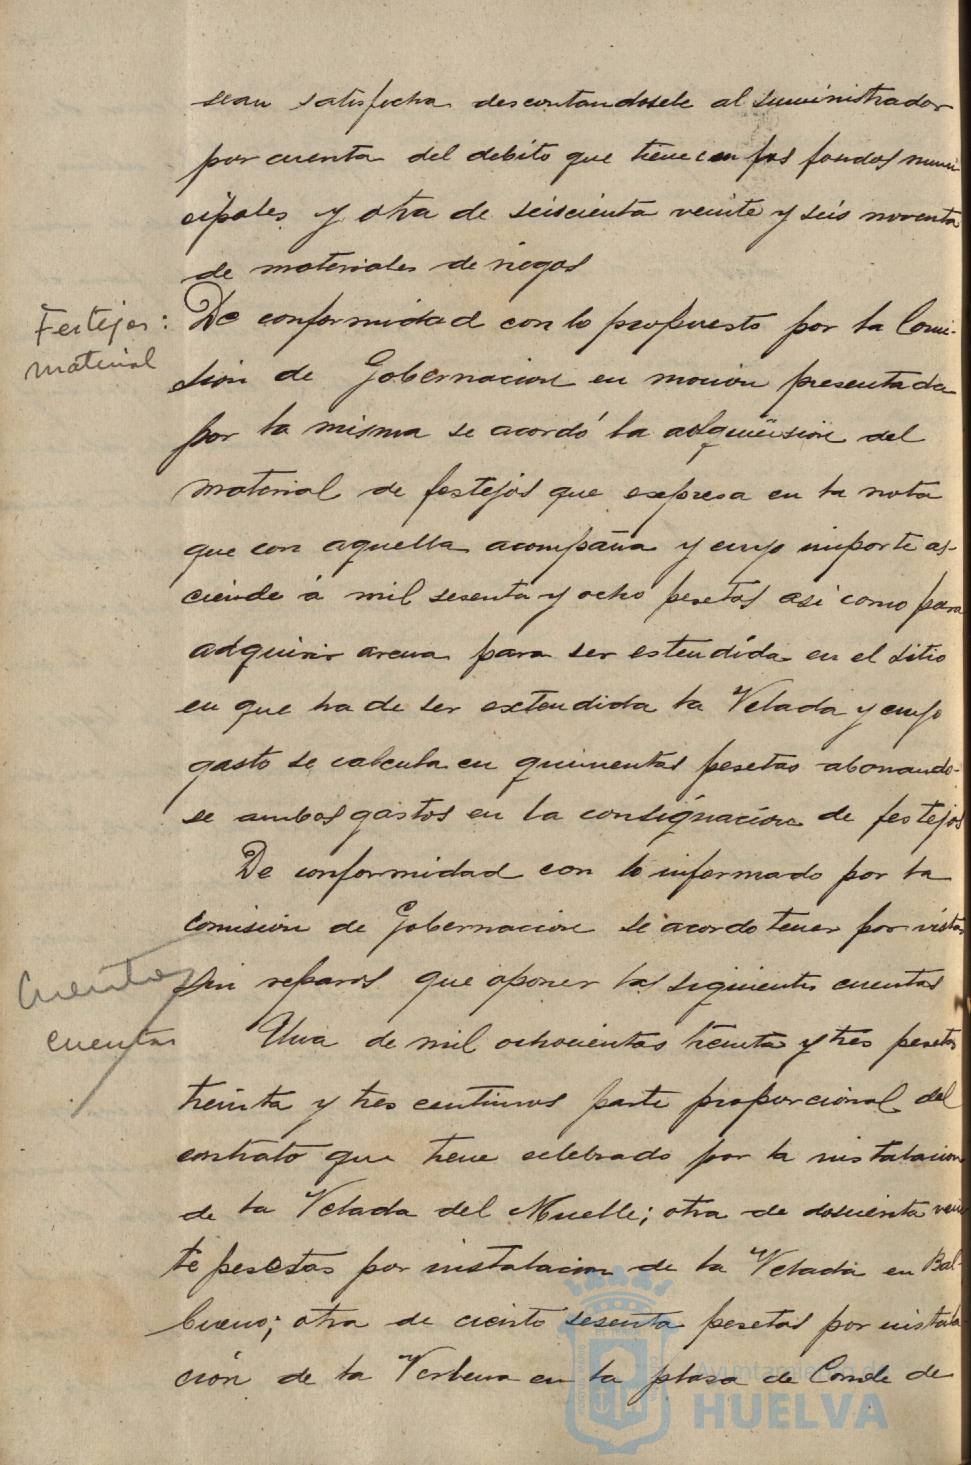 sean satisfecha descontandosele al suministrador
por cuenta del debito que tiene con los fondos muni
cipales y otra de seiscienta veinte y seis noventa
de materiales de riegos
Festejos:
material
De conformidad con lo propuesto por la Comi-
sion de Gobernacion en mocion presentada
por la misma se acordó la adquisision del
material de festejos que expresa en la nota
que con aquella acompaña y cuyo importe as-
ciende á mil sesenta y ocho pesetas asi como para
adquirir arena para ser estendida en el sitio
en que ha de ser extendida la Velada y cuyo
gasto se calcula en quinientas pesetas abonando-
se ambos gastos en la consignacion de festejos
De conformidad con lo informado por la
comision de Gobernacion se acordo tener por vistas
Cuentas
sin reparos que oponer las siguientes cuentas
cuentas
Una de mil ochocientas treinta y tres pesetas
treinta y tres centimos parte proporcional del
contrato que tiene celebrado por la instalacion
de la Velada del Muelle; otra de doscienta vein
te pesetas por instalacion de la Velada en Bal-
bueno; otra de ciento sesenta pesetas por instala
ción de la Verbena en la plaza de Conde de
Ayuntamiento de
HUELVA